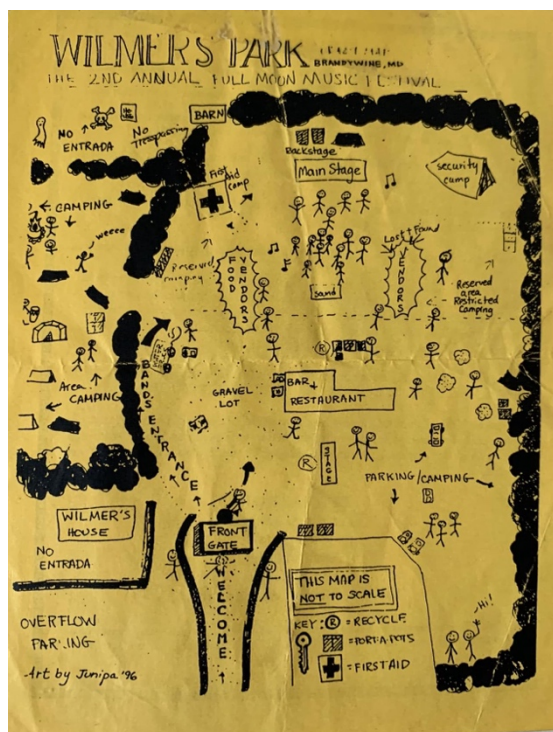 WILMER'S PARK
BRANDYWINE, MD
THE 2ND ANNUAL FULL MOON MUSIC FESTIVAL
NO
ENTRADA
NO
Trespassing
BARN
Backstage
Main Stage
security
camp
First
Aid
Camp
← CAMPING
weeee
Reserved
camping
FOOD
VENDORS
Lost + Found
VENDORS
Sound
Reserved
area
Restricted
Camping
R
Area
CAMPING
BANDS ENTRANCE
GRAVEL
LOT
BAR +
RESTAURANT
R
STAGE
PARKING/CAMPING
WILMER'S
HOUSE
NO
ENTRADA
FRONT
GATE
WELCOME
THIS MAP IS
NOT TO SCALE
KEY: R = RECYCLE
= PORT-A-POTS
= FIRST AID
-Hi!
OVERFLOW
PARKING
Art by Junipa '96